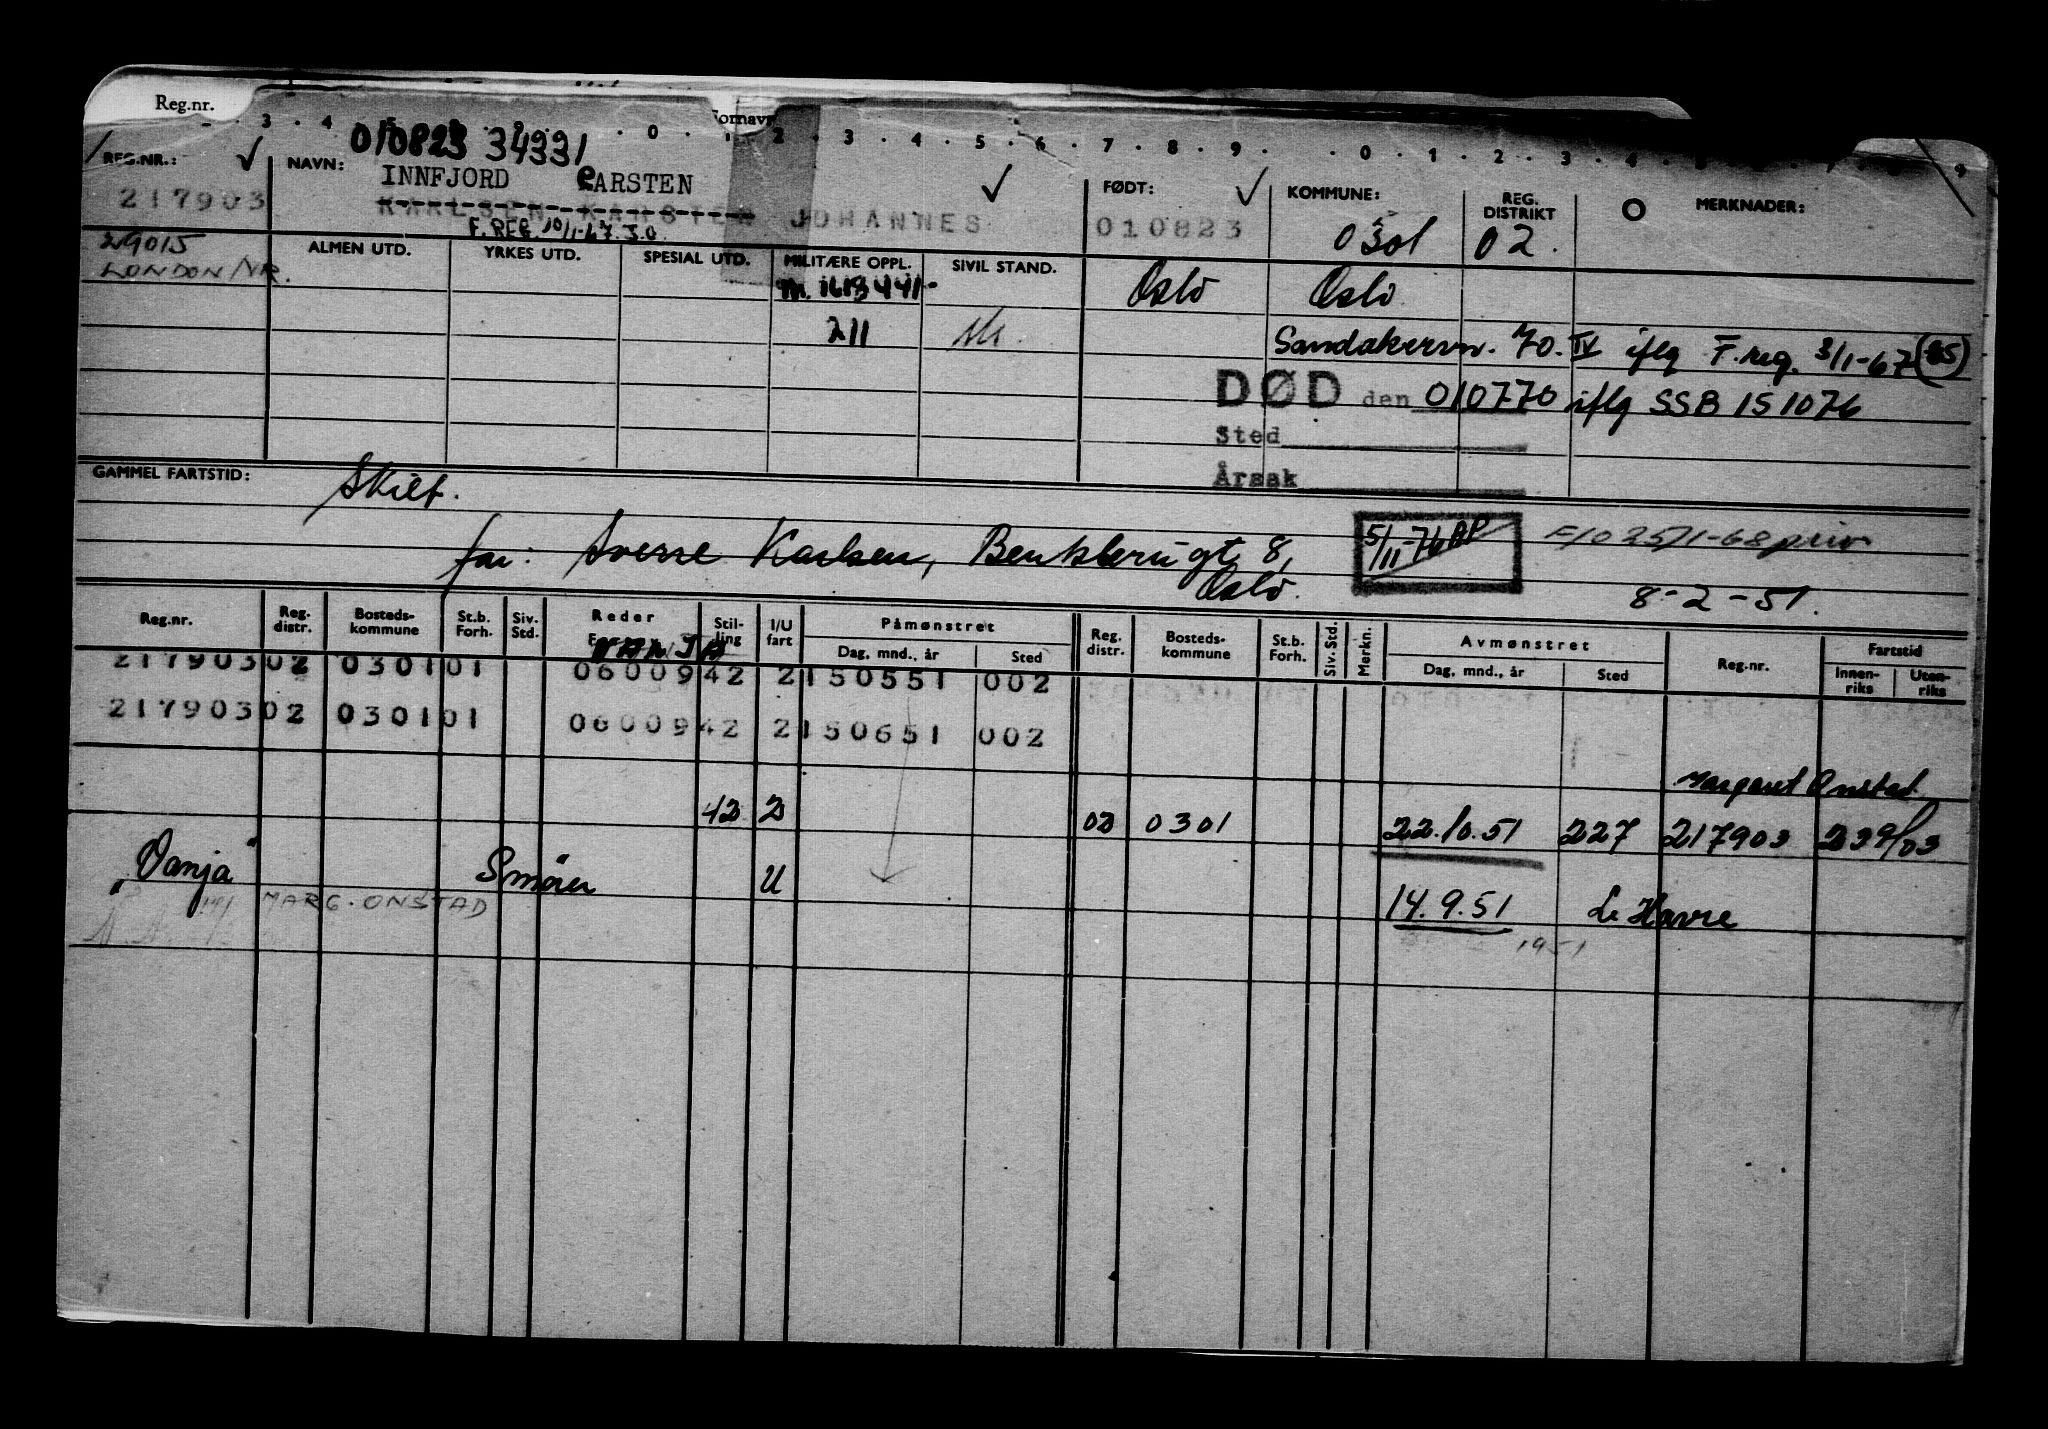 Reg.nr. Fornavn
010823 34331
REG.NR.: NAVN: INNFJORD CARSTEN FØDT: KOMMUNE: REG. DISTRIKT MERKNADER:
217903 KARLSEN KARSTEN JOHANNES 010823 0301 02.
F. REG 10/1-67. J.O.
29015
LONDON/NR.
ALMEN UTD. YRKES UTD. SPESIAL UTD. MILITÆRE OPPL. SIVIL STAND.
Oslo Oslo
211
Sandakervn. 70. IV iflg F.reg. 3/1-67
DØD den 010770 iflg SSB 151076
Sted
Årsak
GAMMEL FARTSTID: Skilt.
far: Sverre Karlsen, gt 8, Oslo.
5/11-76
8-2-51.
Reg.nr. Reg. distr. Bosteds-kommune St.b. Forh. Siv. Std. Reder Stil-ling I/U fart Påmønstret Dag, mnd., år Sted Reg. distr. Bosteds-kommune St.b. Forh. Siv. Std. Merkn. Avmønstret Dag, mnd., år Sted Reg.nr. Fartstid Innen-riks Uten-riks
VANJA
217903 02 0301 01 06009 42 2 150551 002
217903 02 0301 01 06009 42 2 150651 002
Margaret Onstad
42 2 02 0301 22.10.51 227 217903 239/03
"Vanja" Smører U 14.9.51 Le Havre
MARG. ONSTAD
1951